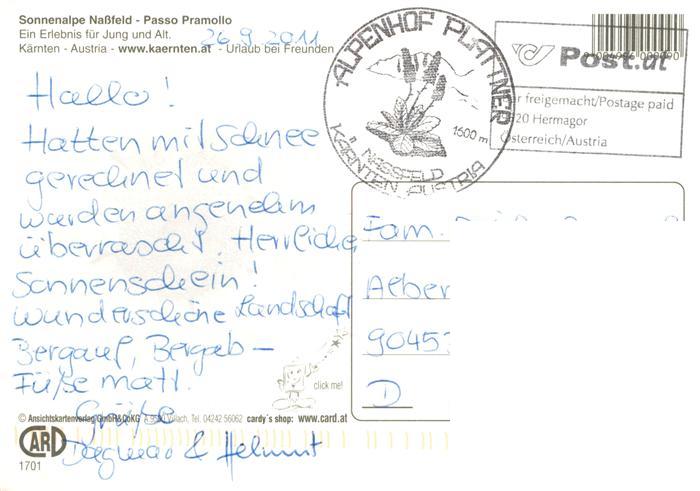 Sonnenalpe Naßfeld - Passo Pramollo
Ein Erlebnis für Jung und Alt.
Kärnten - Austria - www.kaernten.at - Urlaub bei Freunden
26.9.2011
Hallo!
Hatten mit Schnee
gerechnet und
wurden angenehm
überrascht. Herrlicher
Sonnenschein!
Wunderschöne Landschaft
Bergauf, Bergab –
Füße matt.
Grüße
Dagmar & Helmut
ALPENHOF PLATTNER
1600 m
NASSFELD
KÄRNTEN AUSTRIA
Post.at
freigemacht/Postage paid
20 Hermagor
Österreich/Austria
Fam.
Alber
9045
D
click me!
© Ansichtskartenverlag GmbH&CoKG A 9500 Villach, Tel. 04242 56062 cardy´s shop: www.card.at
CARD
1701